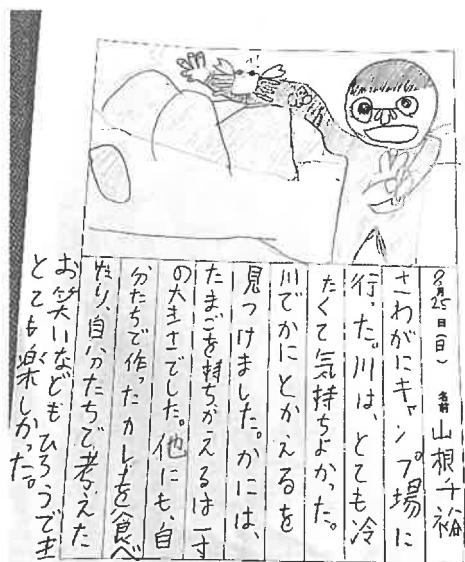 8月25日(日) 名前 山根千裕
さわがにキャンプ場に
行った。川は、とても冷
たくて気持ちよかった。
川でかにとかえるを
見つけました。かには、
たまごを持ちかえるは一寸
の大きさでした。他にも、自
分たちで作ったカレーを食べ
たり、自分たちで考えた
お笑いなどもひろうでき
とても楽しかった。